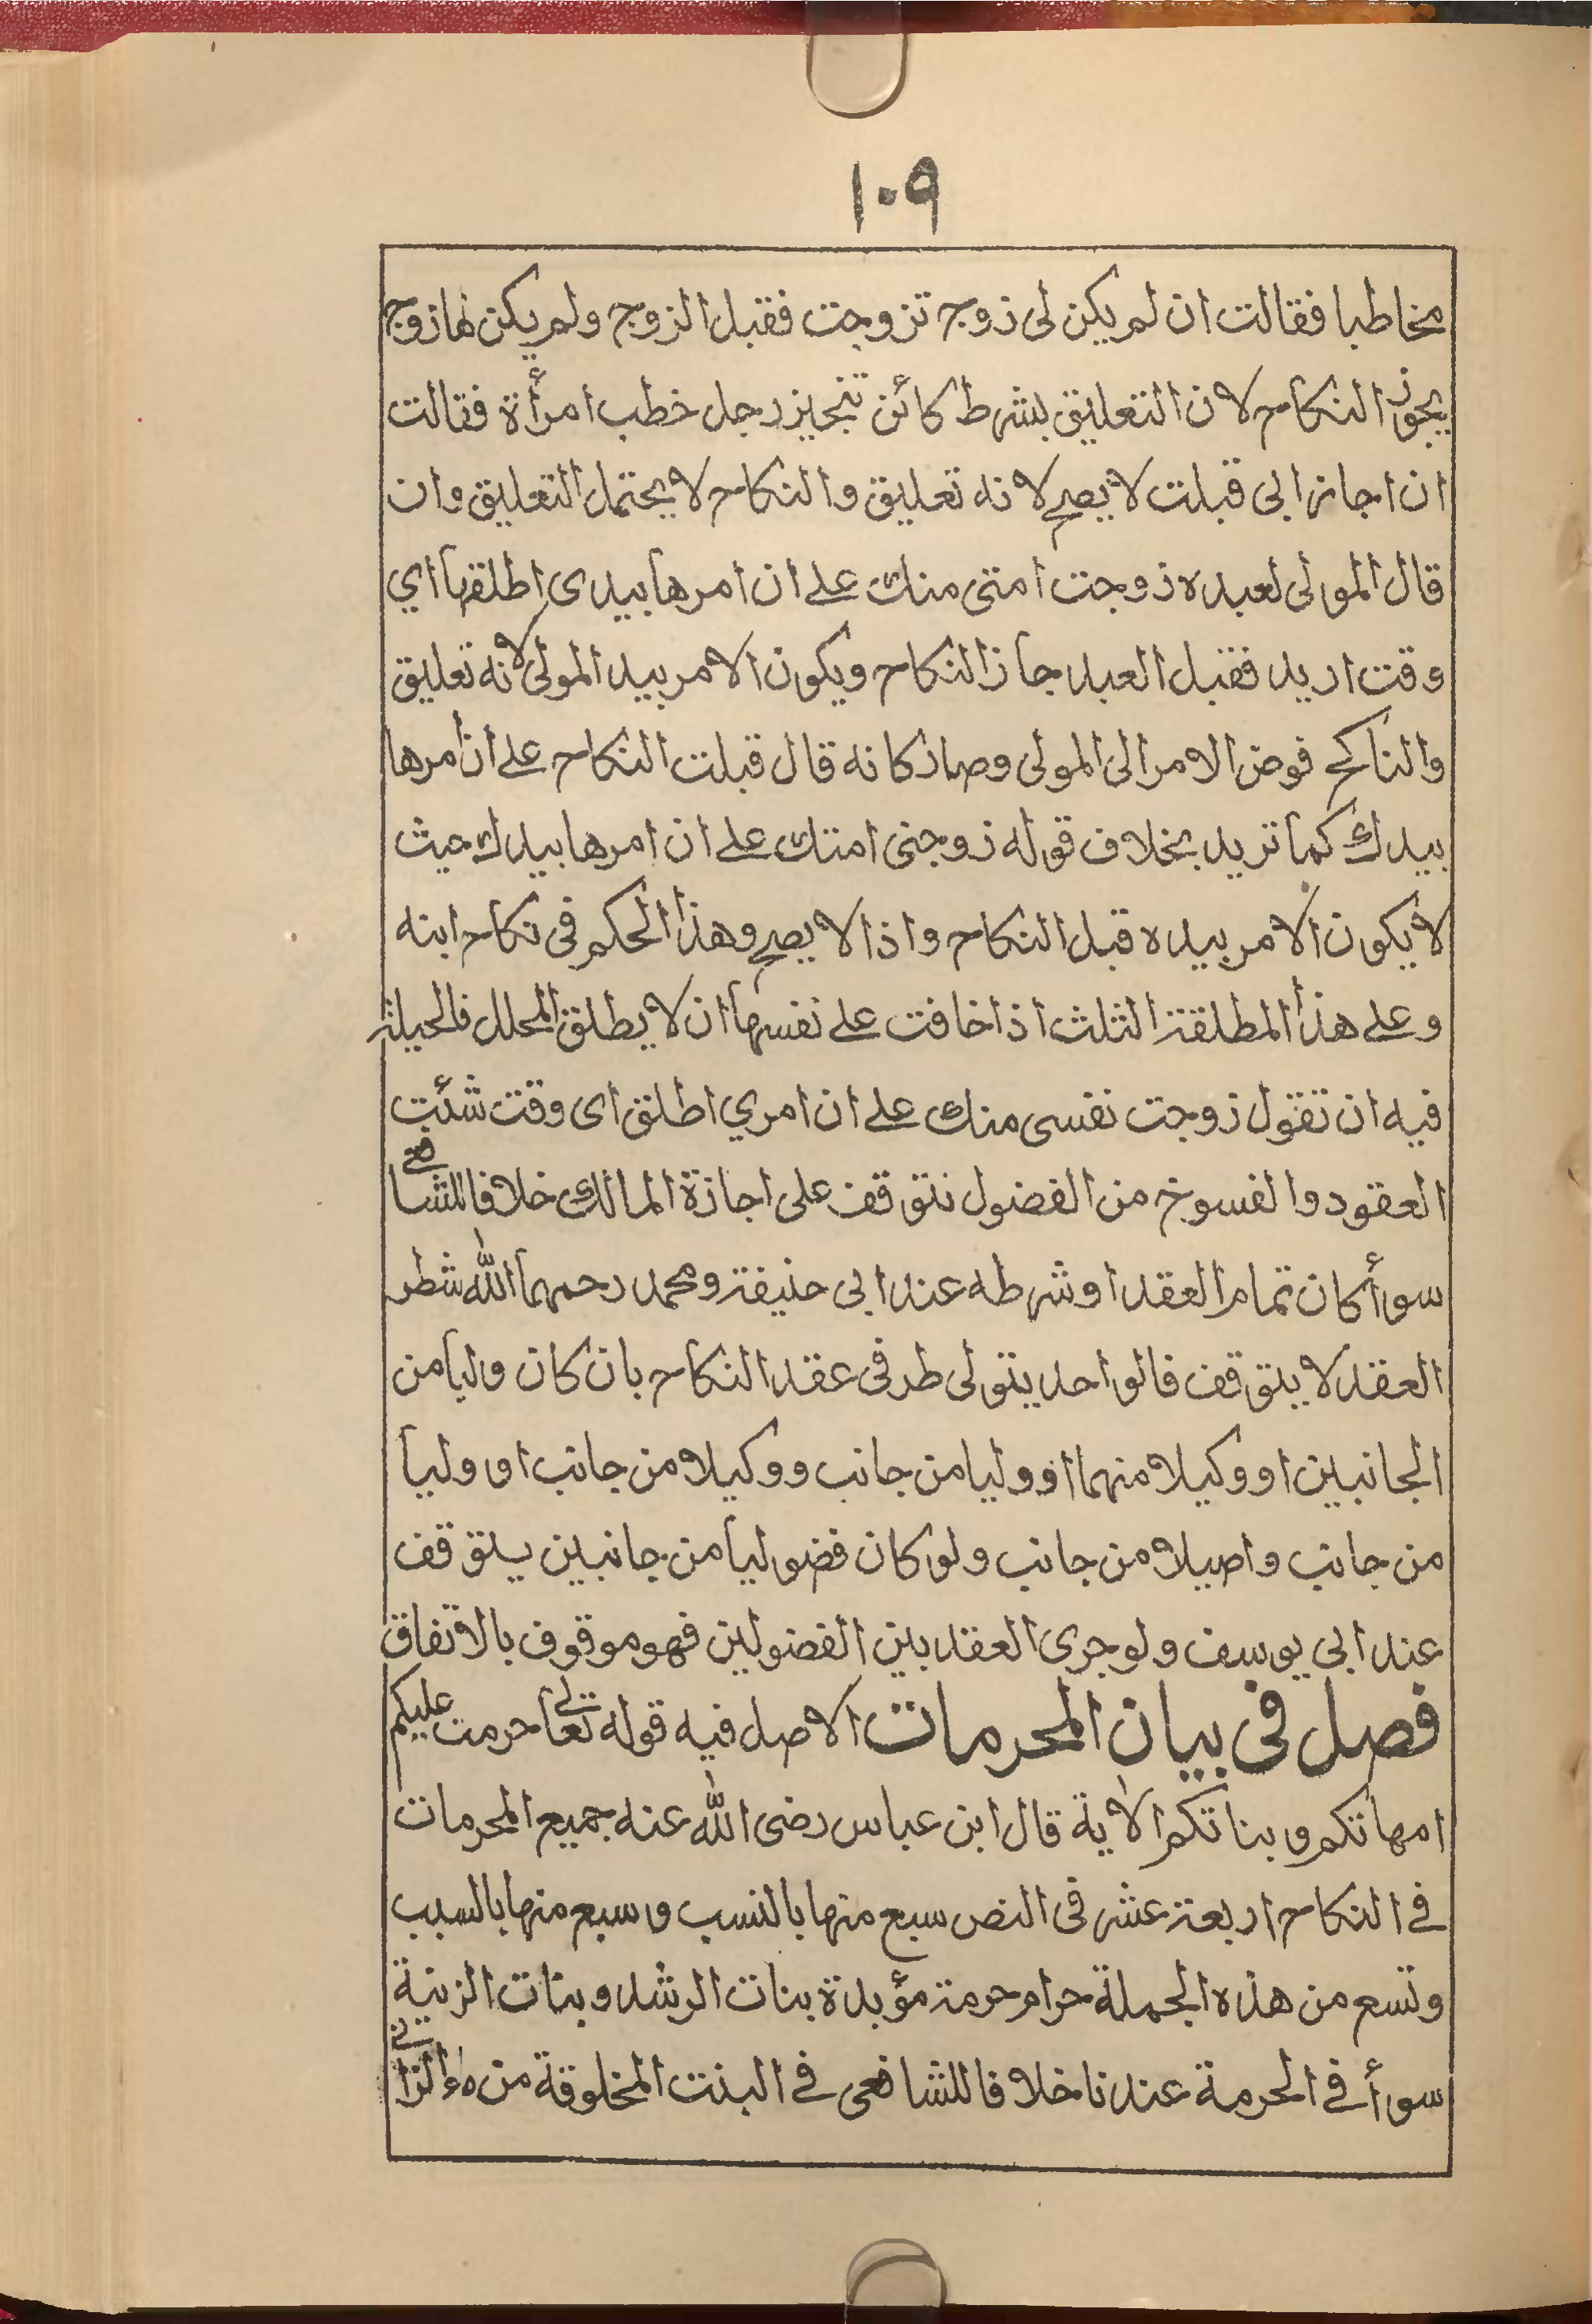 ١٠٩
مخاطبا فقالت ان لم يكن لى زوج تزوجت فقبل الزوج ولم يكن لها زوج
يجوز النكاح لان التعليق بشرط كائن تنجيز رجل خطب امرأة فقالت
ان اجاز ابى قبلت لا يصح لانه تعليق والنكاح لا يحتمل التعليق وان
قال المولى لعبده زوجت امتى منك على ان امرها بيدى اطلقها اي
وقت اريد فقبل العبد جاز النكاح ويكون الامر بيد المولى لانه تعليق
والناكح فوض الامر الى المولى وصار كانه قال قبلت النكاح على ان امرها
بيدك كما تريد بخلاف قوله زوجنى امتك على ان امرها بيدك حيث
لا يكون الامر بيده قبل النكاح واذا لا يصح وهذا الحكم فى نكاح ابنه
وعلى هذا المطلقة الثلث اذا خافت على نفسها ان لا يطلق المحلل فالحيلة
فيه ان تقول زوجت نفسى منك على ان امري اطلق اى وقت شئت
العقود والفسوخ من الفضول نتوقف على اجازة المالك خلافا للشافعى
سوأ كان تمام العقد او شرطه عند ابى حنيفة ومحمد رحمهما الله شطر
العقد لا يتوقف فالواحد يتولى طرفى عقد النكاح بان كان وليا من
الجانبين او وكيلا منهما او وليا من جانب ووكيلا من جانب او وليا
من جانب واصيلا من جانب ولو كان فضوليا من جانبين يتوقف
عند ابى يوسف ولو جرى العقد بين الفضولين فهو موقوف بالاتفاق
فصل فى بيان المحرمات الاصل فيه قوله تعالى حرمت عليكم
امهاتكم وبناتكم الاية قال ابن عباس رضى الله عنه جميع المحرمات
فى النكاح اربعة عشر فى النص سبع منها بالنسب وسبع منها بالسبب
وتسع من هذه الجملة حرام حرمة مؤبدة بنات الرشد وبنات الزنية
سوأ فى الحرمة عندنا خلافا للشافعى فى البنت المخلوقة من ماء الزانى